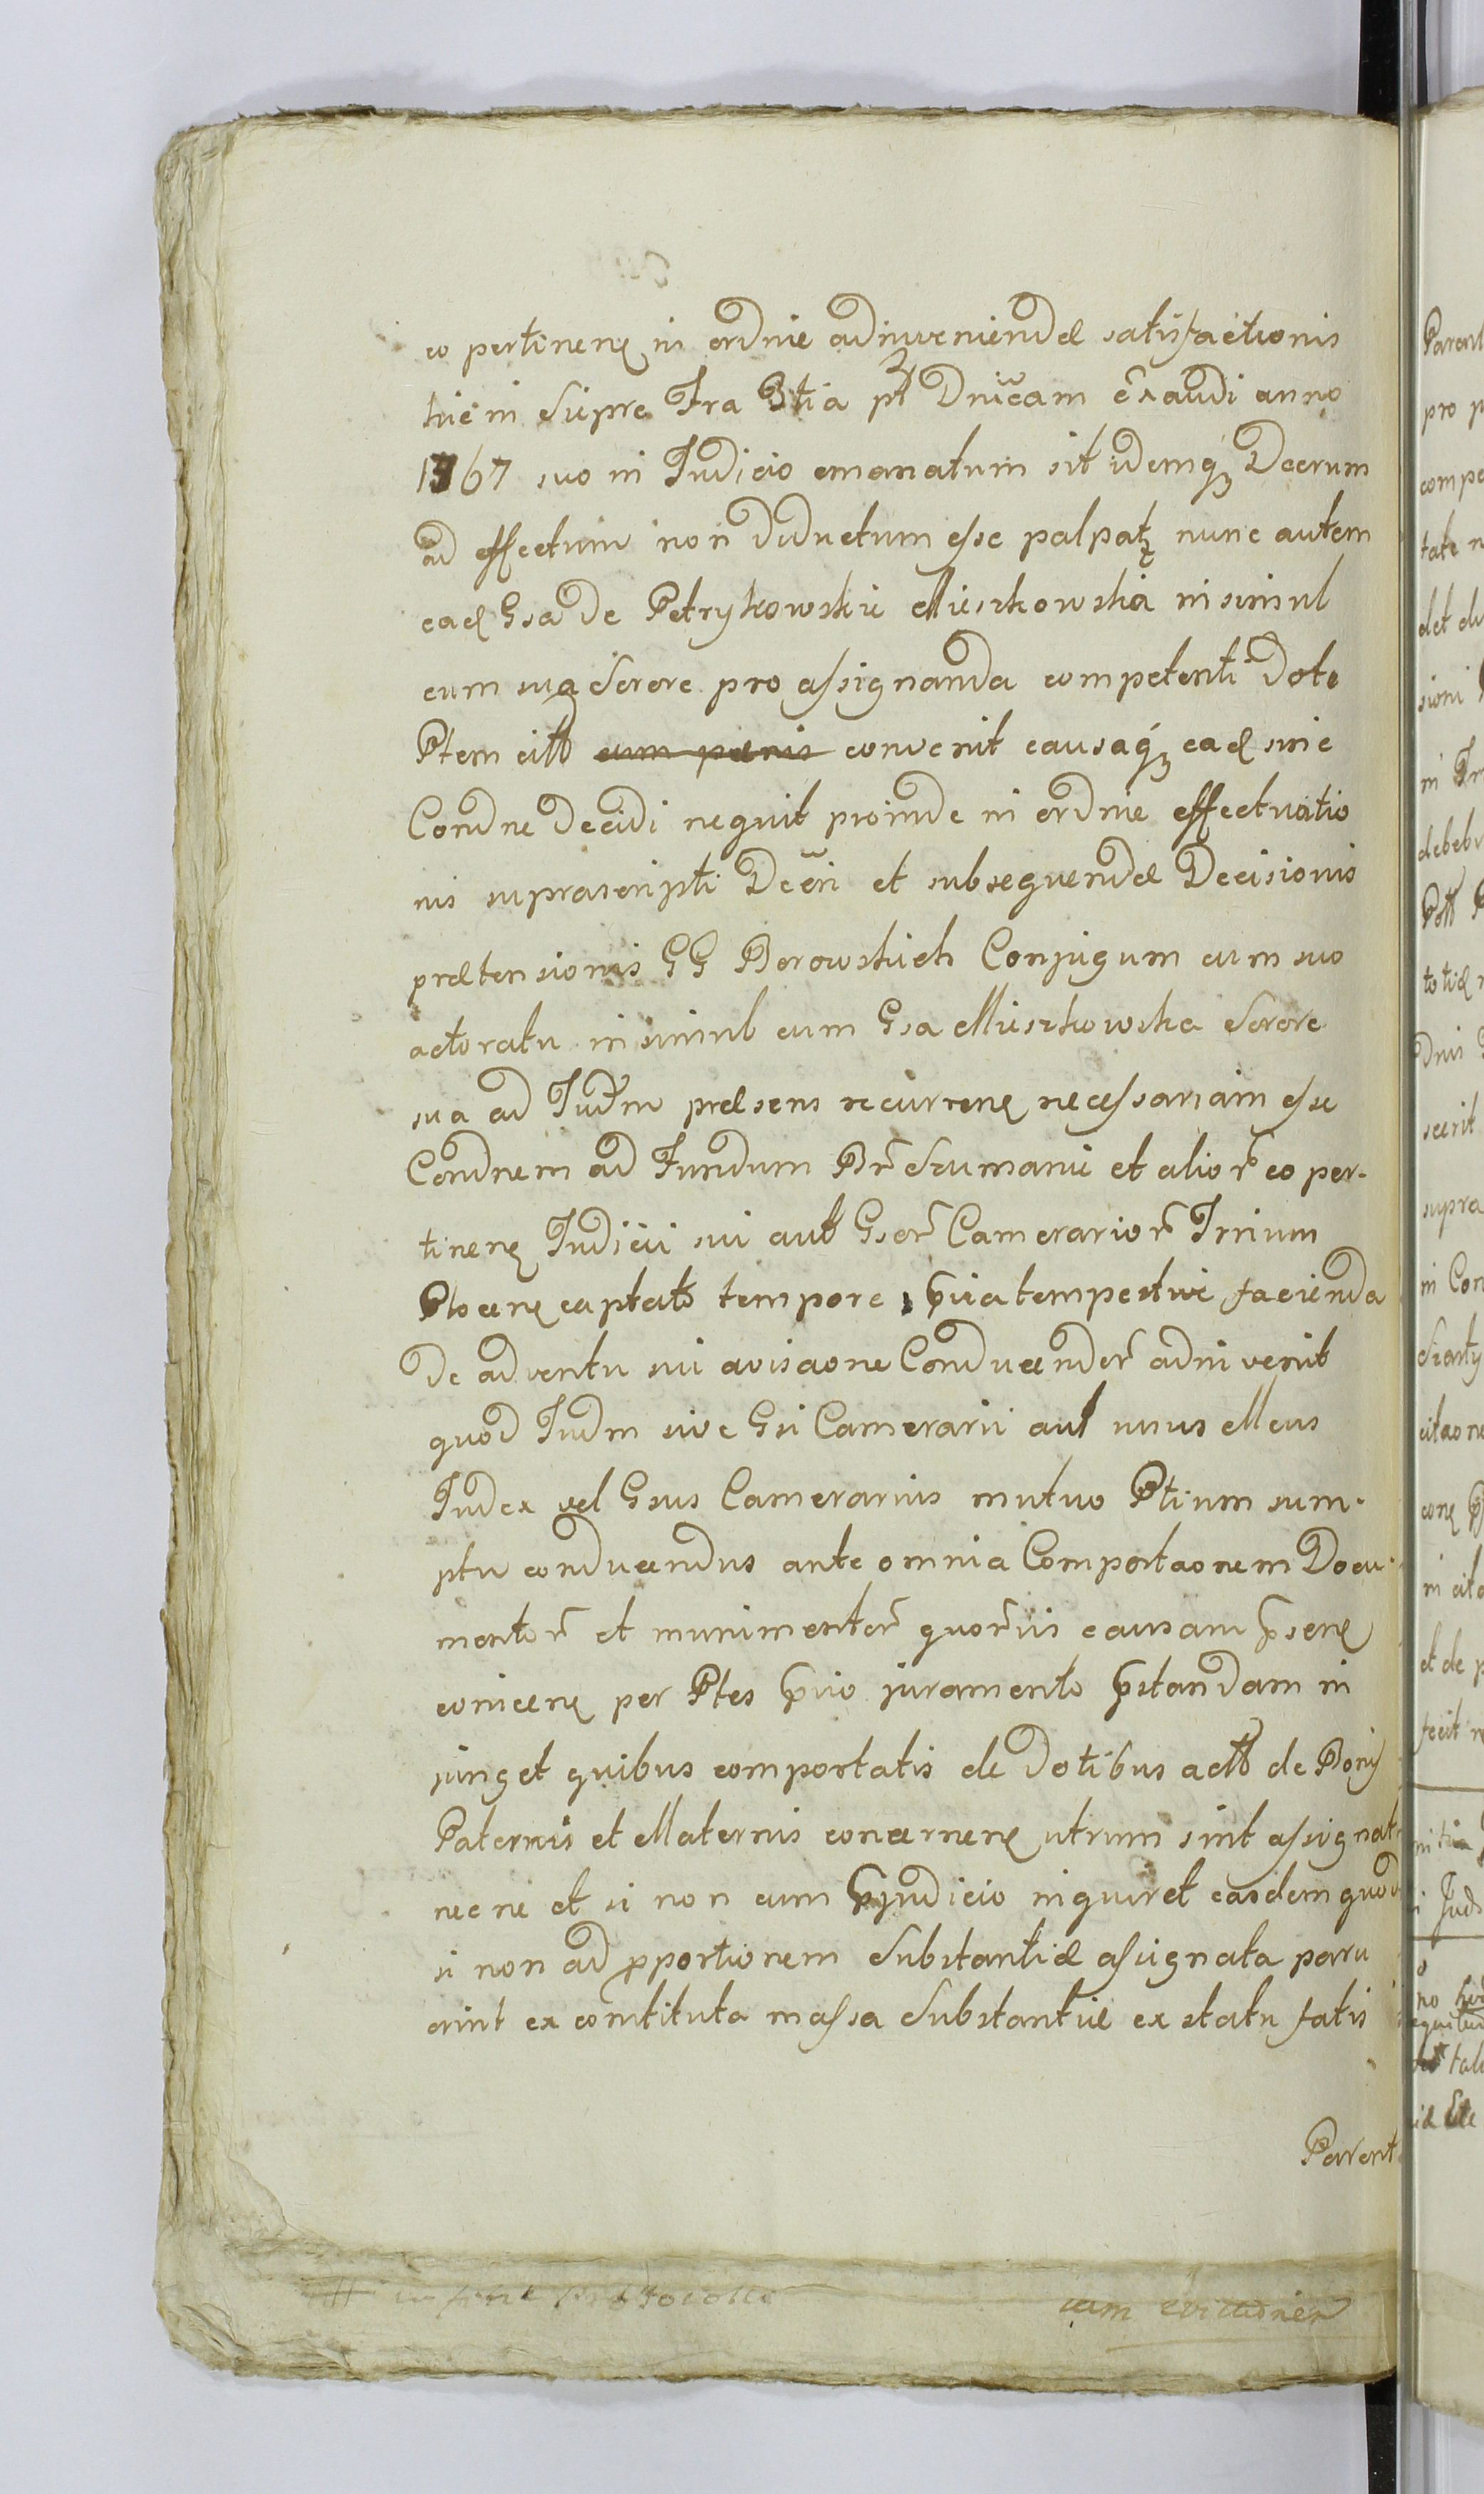 eo pertineñ in ordine adinveniendæ satisfactionis
hic in Sierpc Fra 3tia pt Dnĩcam exaudi anno
1767 suo in Judicio emanatum sit idemq3 Decrum
ad effectum non deductum esse palpatʒ nunc autem
eaḍ Gsa de Petrykowskie Mieszkowska insimul
cum sua Sorore pro assignanda competenti Dote
Ptem citt cum pœnis convenit causaq3 eaḍ sine
Condne decidi nequit proinde in ordine effectuatio
nis suprascripti Decri et subsequendæ Decisionis
prætensionis GG Borowskich Conjugum cum suo
actoratu insimul cum Gsa Mieszkowska Sorore
sua ad Judm præsens recurreñ necessariam esse
Condnem ad Fundum Br Szumanie et alior eo per-
tineñ Judicii sui aut Gsor Camerarior Trrium
Ploceñ captato tempore, pvia tempestive facienda
de adventu sui avisaone Conducendor adinvenit
quod Judm sive Gsi Camerarii aut unus Meus
Judex vel Gsus Camerarius mutuo Ptium sum-
ptu conducendus ante omnia Comportaonem Docu-
mentor et munimentor quorvis causam psenẹ
conceñ per Ptes pvio juramento pstandam in
junget quibus comportatis de Dotibus actt de Bonis
Paternis et Maternis concerneñ utrum sint assignat
nec ne et si non cum pjudicio inquiret easdem quod
si non ad pportionem Substantiæ assignata paru
erint ex constituta massa Substantiæ ex statu fatis
Parent
in fine protocolli
cum evictionem